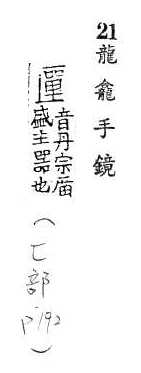 21 龍龕手鏡
匰音丹宗庿
盛主器也
（匚部 p192）